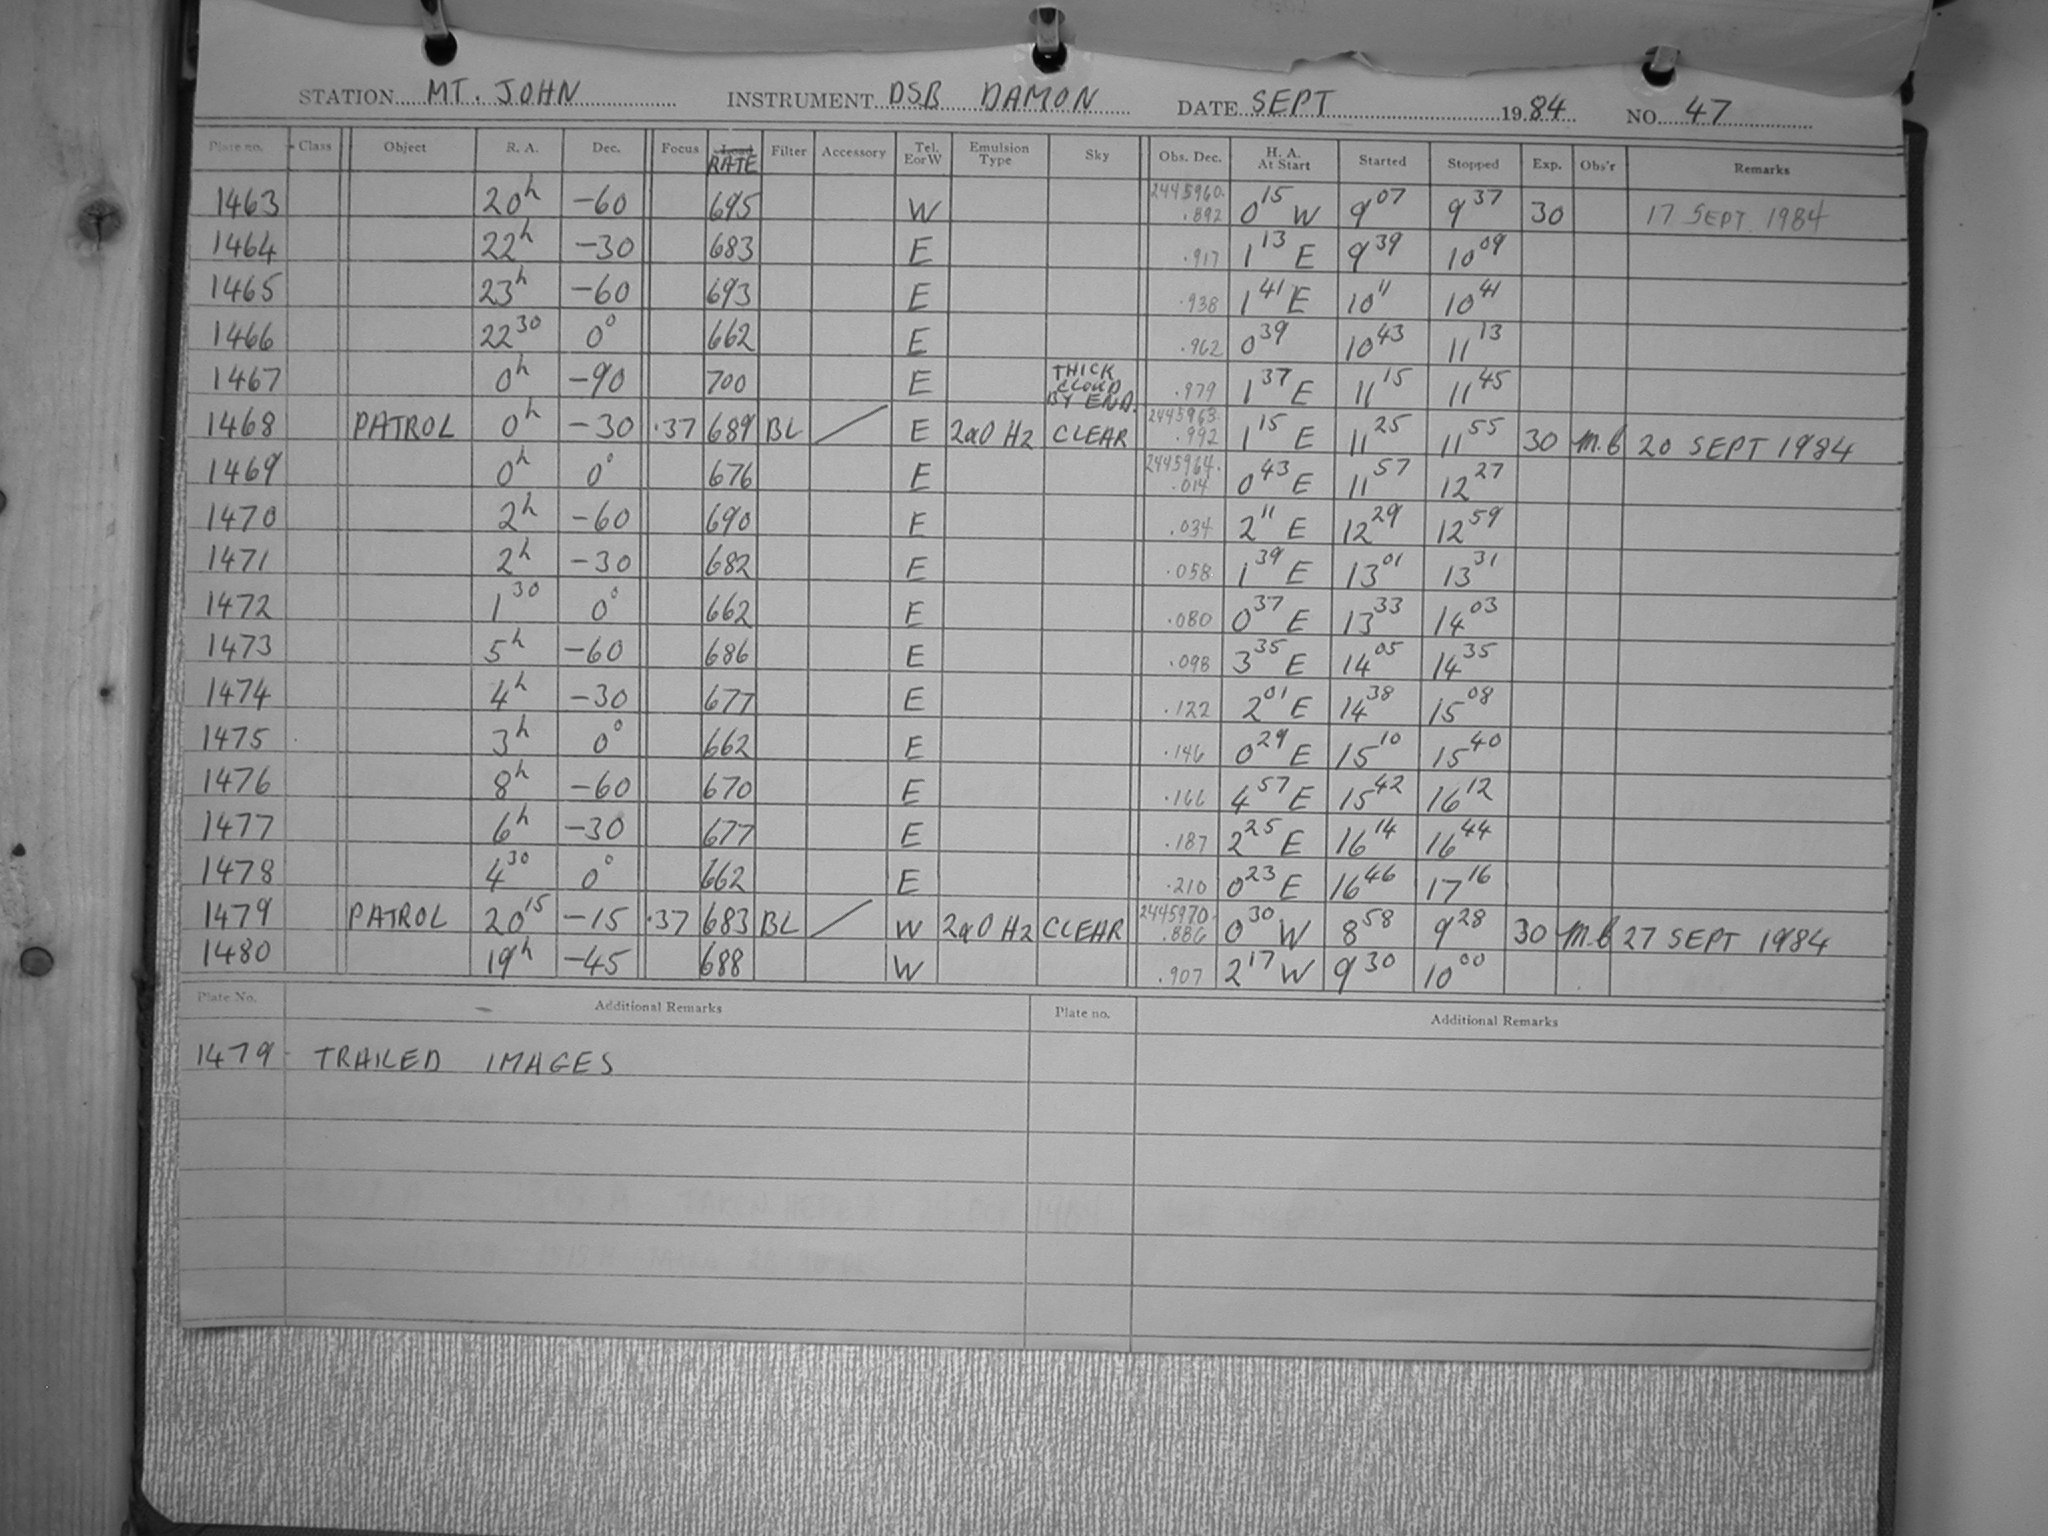 STATION MT. JOHN INSTRUMENT DSB DAMON DATE SEPT 1984 NO. 47
Plate no. Class Object R. A. Dec. Focus Load RATE Filter Accessory Tel. E or W Emulsion Type Sky Obs. Dec. H. A. At Start Started Stopped Exp. Obs'r Remarks
1463 20h -60 695 W 2445960. .892 0 15 W 9 07 9 37 30 17 SEPT 1984
1464 22h -30 683 E .917 1 13 E 9 39 10 09
1465 23h -60 693 E .938 1 41 E 10 11 10 41
1466 22 30 0° 662 E .962 0 39 10 43 11 13
1467 0h -90 700 E THICK CLOUD BY END. .979 1 37 E 11 15 11 45
1468 PATROL 0h -30 .37 689 BL / E 2aO H2 CLEAR 2445963. .992 1 15 E 11 25 11 55 30 m.b 20 SEPT 1984
1469 0h 0° 676 E 2445964. .014 0 43 E 11 57 12 27
1470 2h -60 690 E .034 2 11 E 12 29 12 59
1471 2h -30 682 E .058 1 39 E 13 01 13 31
1472 1 30 0° 662 E .080 0 37 E 13 33 14 03
1473 5h -60 686 E .098 3 35 E 14 05 14 35
1474 4h -30 677 E .122 2 01 E 14 38 15 08
1475 3h 0° 662 E .146 0 29 E 15 10 15 40
1476 8h -60 670 E .166 4 57 E 15 42 16 12
1477 6h -30 677 E .187 2 25 E 16 14 16 44
1478 4 30 0° 662 E .210 0 23 E 16 46 17 16
1479 PATROL 20 15 -15 .37 683 BL / W 2aO H2 CLEAR 2445970. .886 0 30 W 8 58 9 28 30 m.b 27 SEPT 1984
1480 19h -45 688 W .907 2 17 W 9 30 10 00
Plate No. Additional Remarks Plate no. Additional Remarks
1479 TRAILED IMAGES